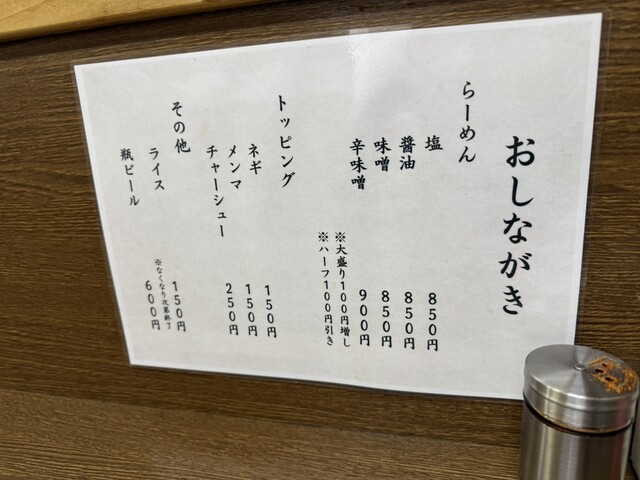 おしながき
らーめん
塩 850円
醤油 850円
味噌 850円
辛味噌 900円
※大盛り100円増し
※ハーフ100円引き
トッピング
ネギ 150円
メンマ 150円
チャーシュー 250円
その他
ライス 150円
※なくなり次第終了
瓶ビール 600円